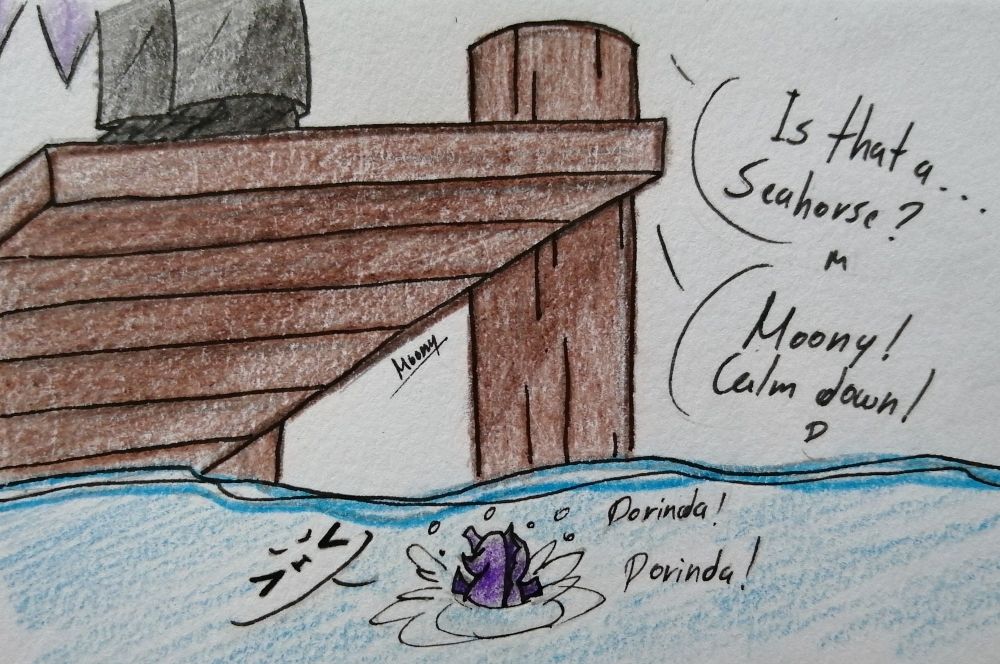 Is that a...
Seahorse?
M
Moony!
Calm down!
D
Moony
Dorinda!
Dorinda!